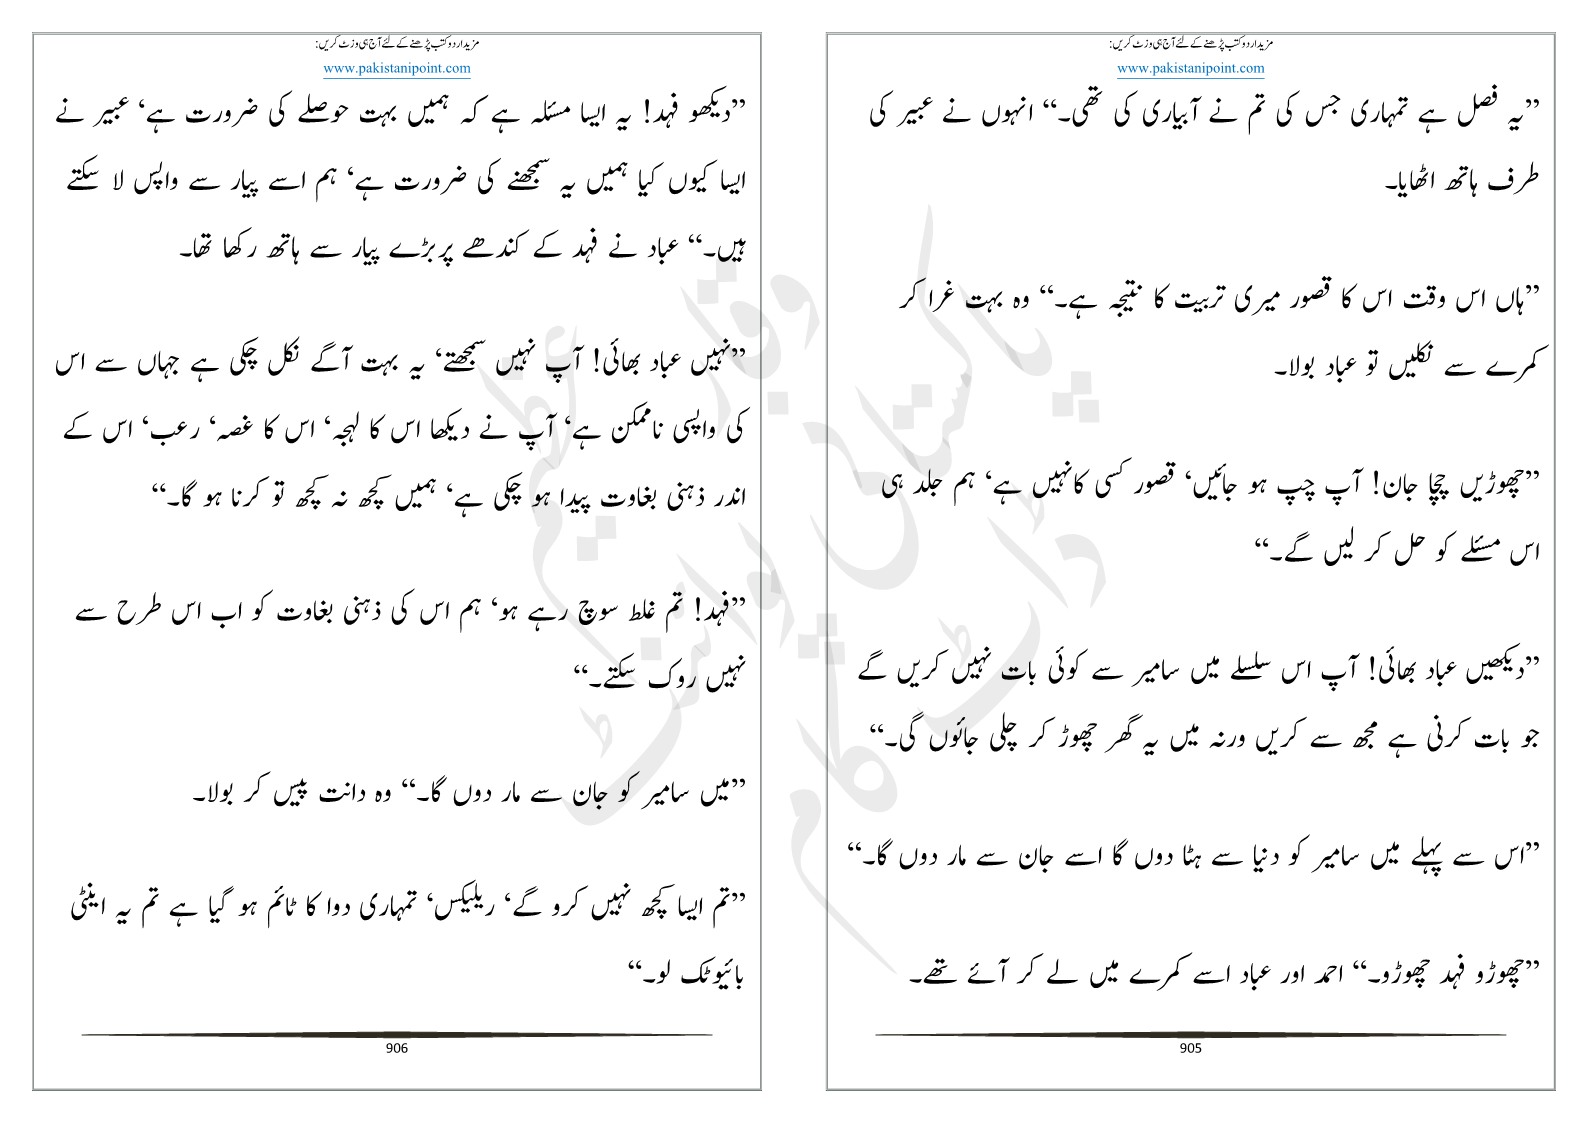 مزید اردو کتب پڑھنے کے لئے آج ہی وزٹ کریں:
www.pakistanipoint.com
”یہ فصل ہے تمہاری جس کی تم نے آبیاری کی تھی۔“ انہوں نے عبیر کی
طرف ہاتھ اٹھایا۔
”ہاں اس وقت اس کا قصور میری تربیت کا نتیجہ ہے۔“ وہ بہت غرا کر
کمرے سے نکلیں تو عباد بولا۔
”چھوڑیں چچا جان! آپ چپ ہو جائیں‘ قصور کسی کانہیں ہے‘ ہم جلد ہی
اس مسئلے کو حل کر لیں گے۔“
”دیکھیں عباد بھائی! آپ اس سلسلے میں سامیر سے کوئی بات نہیں کریں گے
جو بات کرنی ہے مجھ سے کریں ورنہ میں یہ گھر چھوڑ کر چلی جائوں گی۔“
”اس سے پہلے میں سامیر کو دنیا سے ہٹا دوں گا اسے جان سے مار دوں گا۔“
”چھوڑو فہد چھوڑو۔“ احمد اور عباد اسے کمرے میں لے کر آئے تھے۔
905
مزید اردو کتب پڑھنے کے لئے آج ہی وزٹ کریں:
www.pakistanipoint.com
”دیکھو فہد! یہ ایسا مسئلہ ہے کہ ہمیں بہت حوصلے کی ضرورت ہے‘ عبیر نے
ایسا کیوں کیا ہمیں یہ سمجھنے کی ضرورت ہے‘ ہم اسے پیار سے واپس لا سکتے
ہیں۔“ عباد نے فہد کے کندھے پربڑے پیار سے ہاتھ رکھا تھا۔
”نہیں عباد بھائی! آپ نہیں سمجھتے‘ یہ بہت آگے نکل چکی ہے جہاں سے اس
کی واپسی ناممکن ہے‘ آپ نے دیکھا اس کا لہجہ‘ اس کا غصہ‘ رعب‘ اس کے
اندر ذہنی بغاوت پیدا ہو چکی ہے‘ ہمیں کچھ نہ کچھ تو کرنا ہو گا۔“
”فہد! تم غلط سوچ رہے ہو‘ ہم اس کی ذہنی بغاوت کو اب اس طرح سے
نہیں روک سکتے۔“
”میں سامیر کو جان سے مار دوں گا۔“ وہ دانت پیس کر بولا۔
”تم ایسا کچھ نہیں کرو گے‘ ریلیکس‘ تمہاری دوا کا ٹائم ہو گیا ہے تم یہ اینٹی
بائیوٹک لو۔“
906
وقار عظیم
پاکستانی پوائنٹ
ڈاٹ کام